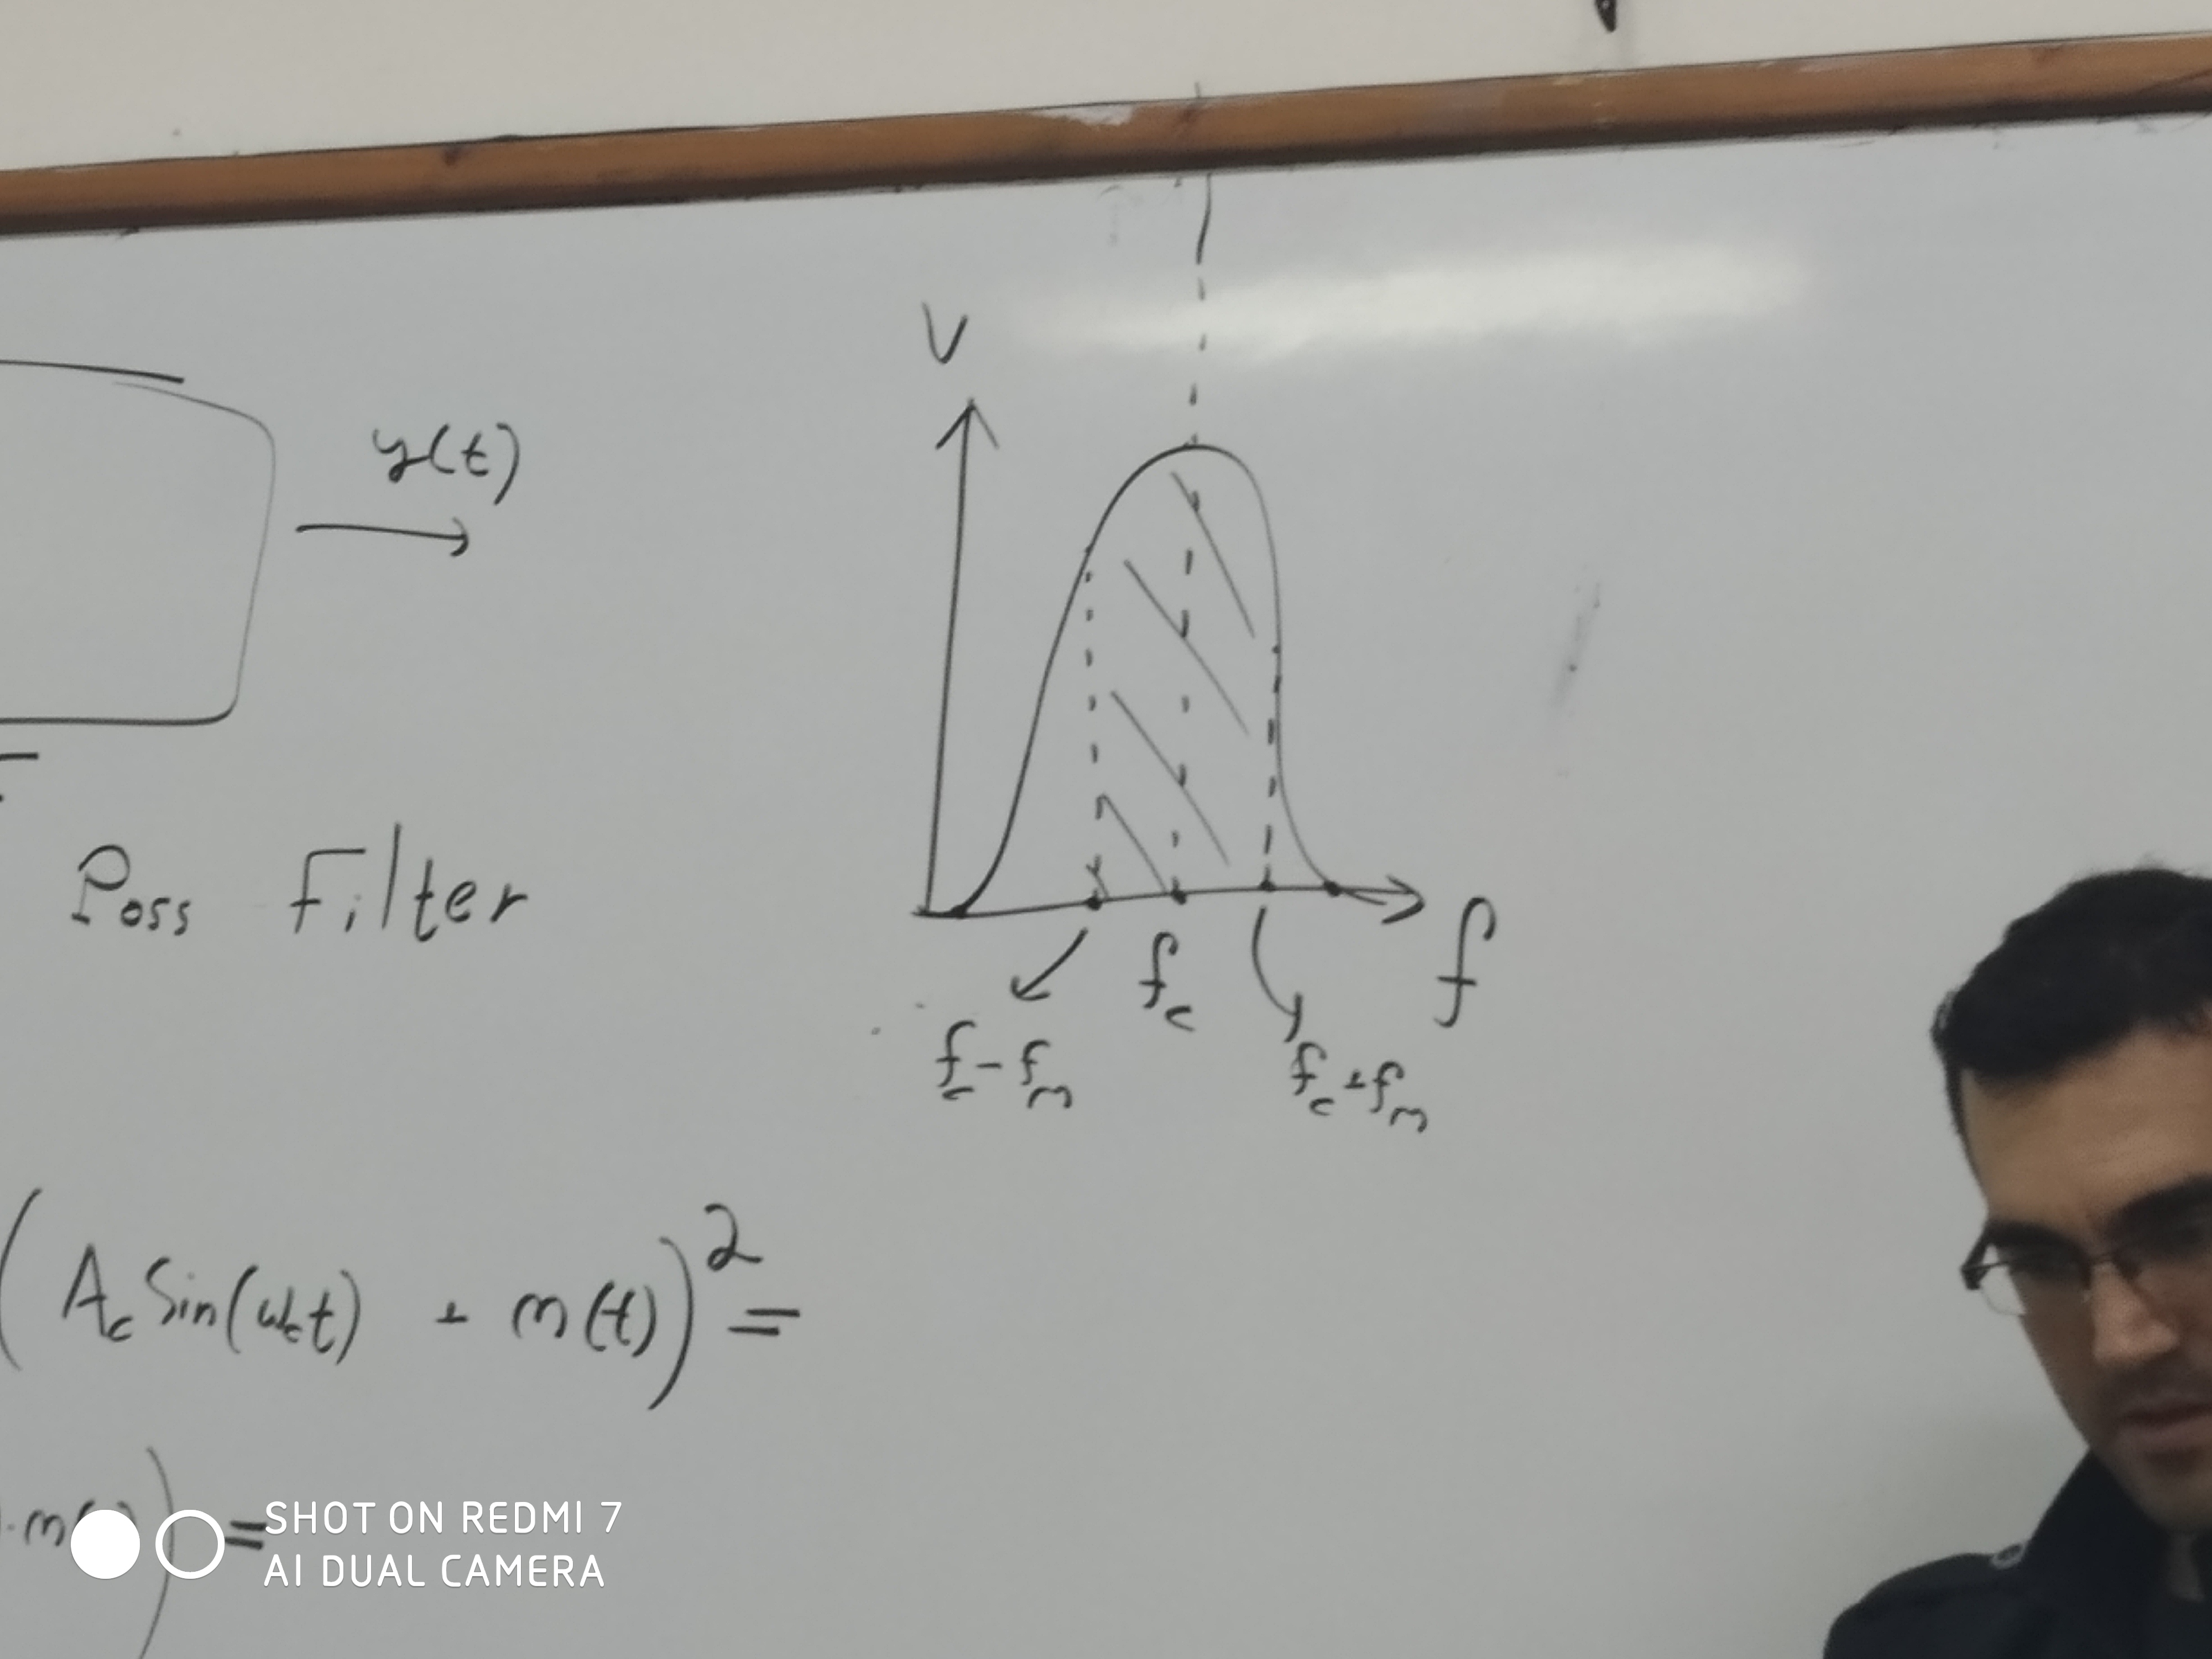 V
y(t)
Poss Filter
f
fc
fc - fm
fc + fm
(Ac Sin(wct) + m(t))² =
) =
SHOT ON REDMI 7
AI DUAL CAMERA